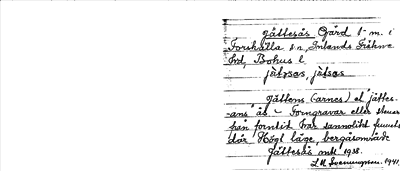 Jättesås Gård 1 m. i
Forshälla sn, Inlands Fräkne
hd, Bohus l.
jä̀tsas, jä̀tsas
Jättens (-arnes) el. jättes-
-ans ås. - Forngravar eller stenar
från forntid har sannolikt funnits
där. Högt läge, bergåsområde
Jättesås mtl 1938.
1941